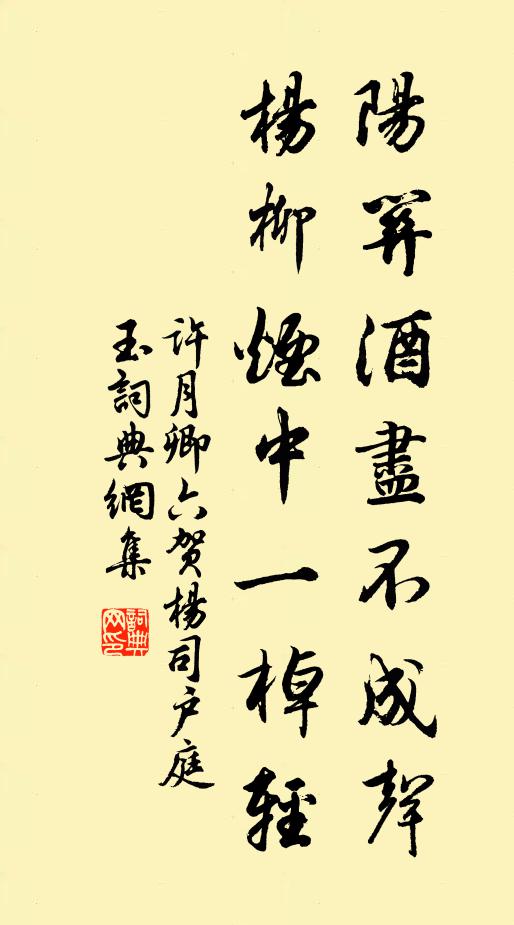 陽關酒盡不成聲
楊柳煙中一棹輕
許月卿六贺楊司戶庭
玉詞典網集
詞典
网印